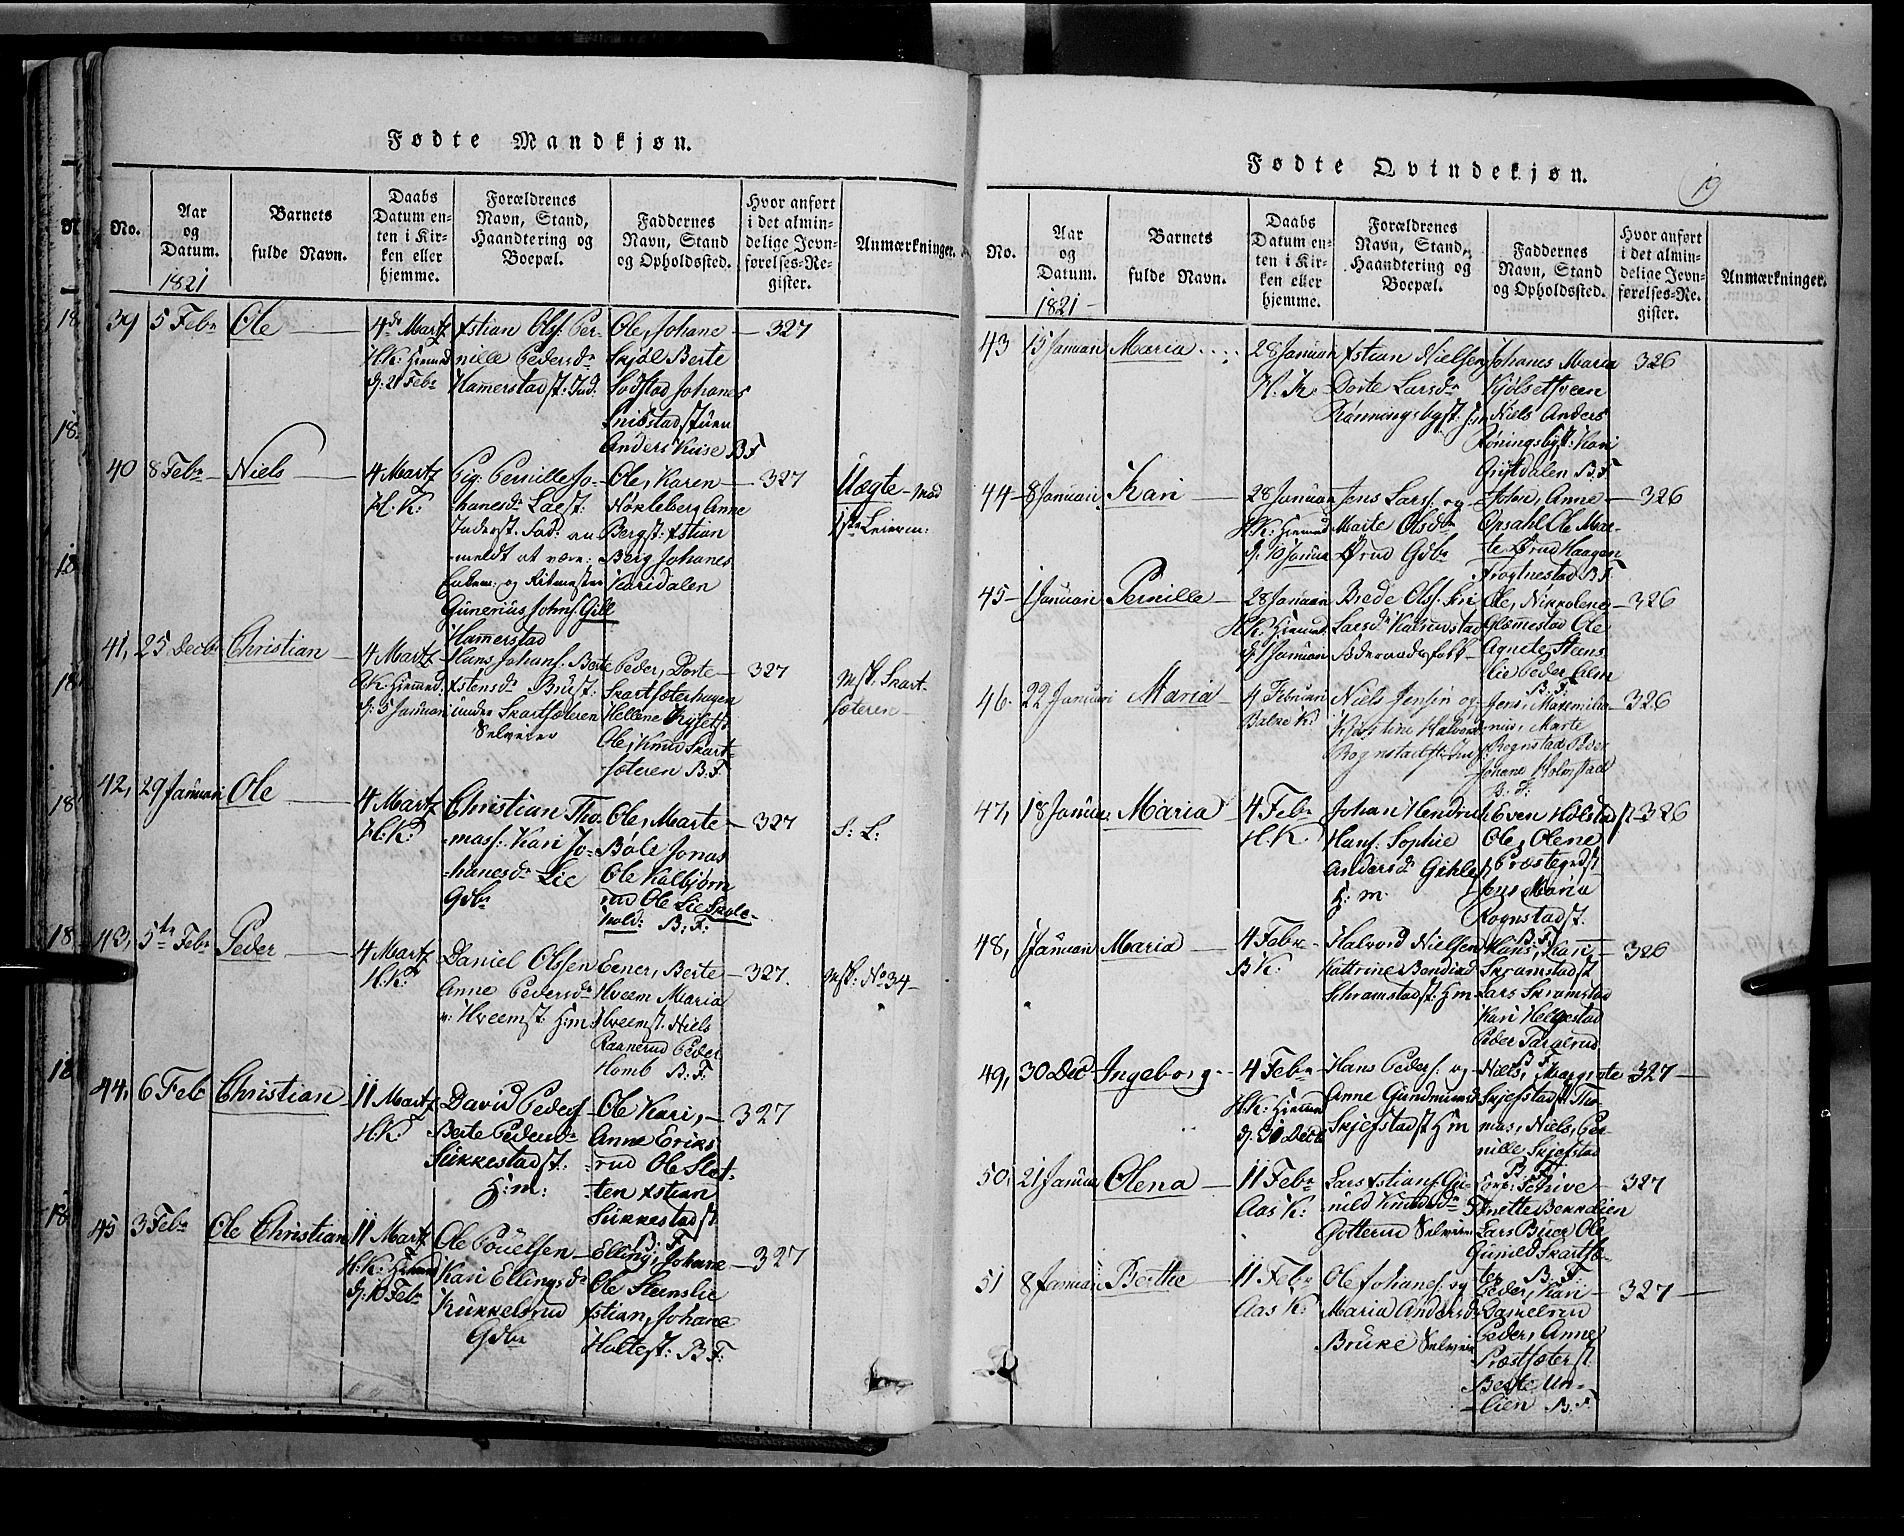 Fødte Mandkjøn.
No.
Aar
og
Datum.
1821
Barnets
fulde Navn.
Daabs
Datum en-
ten i Kir-
ken eller
hjemme.
Forældrenes
Navn, Stand,
Haandtering og
Boepæl.
Faddernes
Navn, Stand
og Opholdssted.
Hvor anført
i det almin-
delige Jevn-
førelses-Re-
gister.
Anmærkninger.
39
5 Febr
Ole
4de Martz
H.K: Hiemed
d: 21 Febr
Xstian Ols: Per-
nille Pedersdr
Hamerstad st: Ind.
Ole, Johane
Skjöl Berte
Sodstad Johanes
Gnibstad stuen
Anders Kuise B F
327
40
8 Febr
Niels
4 Martz
H.K:
Pig: Pernille Jo-
hanesdr Laest:
Inderst. Fad: an-
meldt at være:
Enkem: og Ritmester
Gunerius Johns: Gill
Hamerstad
Ole, Karen
Nøkleberg Anne
Bergst: Xstian
Berg Johanes
Karidalen
327
Uægte - mod
1ste Leierm:
41,
25 Decbr
Christian
4 Martz
H.K. Hiemed:
d: 5 Januari
Hans Johans: Berte
Xstensdr Brust:
under Skartsæteren
Selveier
Peder, Dorte
Skartsæterhagen
Hellene Kyset st
Ole, Knud Skart-
sæteren B.F
327
Msk. Skart-
sæteren
42,
29 Januari
Ole
4 Martz
H:K:
Christian Tho-
mass: Kari Jo-
hanesdr Lie
Gdbr
Ole, Marte
Bøle Jonas
Ole Kalbjørn
rud Ole Lie Skole-
hold: B: F:
327
S: L:
43,
5te Febr
Peder
4 Martz
H:K:
Daniel Olssen
Anne Pedersdr
v: Hveemst: H:m:
Eener, Berte
Hveem Maria
Hveemst. Niels
Raanerud Peder
Homb B:F:
327.
Msk: No 34
44,
6 Feb
Christian
11 Martz
H:K:
David Peders:
Berte Pedersdr
Sukkestad st:
H:m:
Ole Kari,
Anne Eriks-
rud Ole Slet-
ten Xstian
Sukkestad st
B: F
327
45
3 Febr
Ole Christian
11 Martz
H:K: Hiemed
d: 10 Febr
Ole Pouelsen
Kari Ellingsdr
Kukkelsrud
Gdbr
Elling, Johane
Ole Steinslie
Xstian, Johane
Holtest: B F:
327
Fødte Qvindekjøn.
19
No.
Aar
og
Datum.
1821
Barnets
fulde Navn.
Daabs
Datum en-
ten i Kir-
ken eller
hjemme.
Forældrenes
Navn, Stand,
Haandtering og
Boepæl.
Faddernes
Navn, Stand
og Opholdssted.
Hvor anført
i det almin-
delige Jevn-
førelses-Re-
gister.
Anmærkninger.
43
15 Januari
Maria
28 Januari
H: K:
Xstian Nielsen
Dorte Larsdr
Rønningsbyst:
Johanes Maria
Kjølsetsveen
Niels Anders
Røningsbyst: Kari
Gristdalen B.F
326
44
8 Januari
Kari
28 Januari
H.K: Hiemed
d: 10 Januar
Jens Lars: og
Marte Olsdr
Ørud Gdbr
John, Anne
Opsahl Ole Mar-
te Ørud Haagen
Frogtnestad B.F.
326
45
1 Januari
Pernille
28 Januari
H.K: Hiemed
d: 1 Januari
Brede Ols: Siri
Larsdr Kalrustad
Føderaadsfolk
Ole, Nikkoline
Glømestad Ole
Agnete Steens-
lie Peder Alm
B: F:
326
46.
22 Januari
Maria
4 Februari
Balke K:
Niels Jensen og
Kjerstine Halvord
Rognstad st:
Jens, Maximilia-
nus, Marte
Rognstad Peder
Johane Holmstad
B. F:
326
47,
18 Januar
Maria
4 Febr
H:K
Johan Hendrich
Hans: Sophie
Andersdr Gihle
H: m.
Even Holstad
Ole, Olene
Præstegrd st
Jens Maria
Rognstad st.
B: F:
326
48,
1 Januari
Maria
4 Febr
B K:
Halvord Nielsen
Kattrine Bendixd
Schramstad st: H m
Hans, Kari,
Skramstad st
Lars Skramstad
Kari Helgestad
Peder Targerud
B F
326
49,
30 Dec
Ingeborg
4 Febr
H.K: Hiemed
d: 31 Decbr
Hans Peders: og
Anne Gundmunsd
Skjefstad st H m
Niels, Margrete
Skjefstad st Tho-
mas, Niels, Per-
nille Skjefstad
B F
327
50,
21 Januar
Olena
11 Febr
Aas K:
Lars Xstians: Gu-
nild Knudsdr
Gotterud Selveier
Corp: Schive
Anette Bekkelien
Lars Buer Ole
Gunild Skartsæ-
ter B: F:
327
51
8 Januari
Berthe
11 Febr
Aas K:
Ole Johans: og
Maria Andersdr
Bruke Selveier
Peder, Kari
Danielrud
Peder, Anne
Præstsæter st
Berte Un-
lien B: F.
327